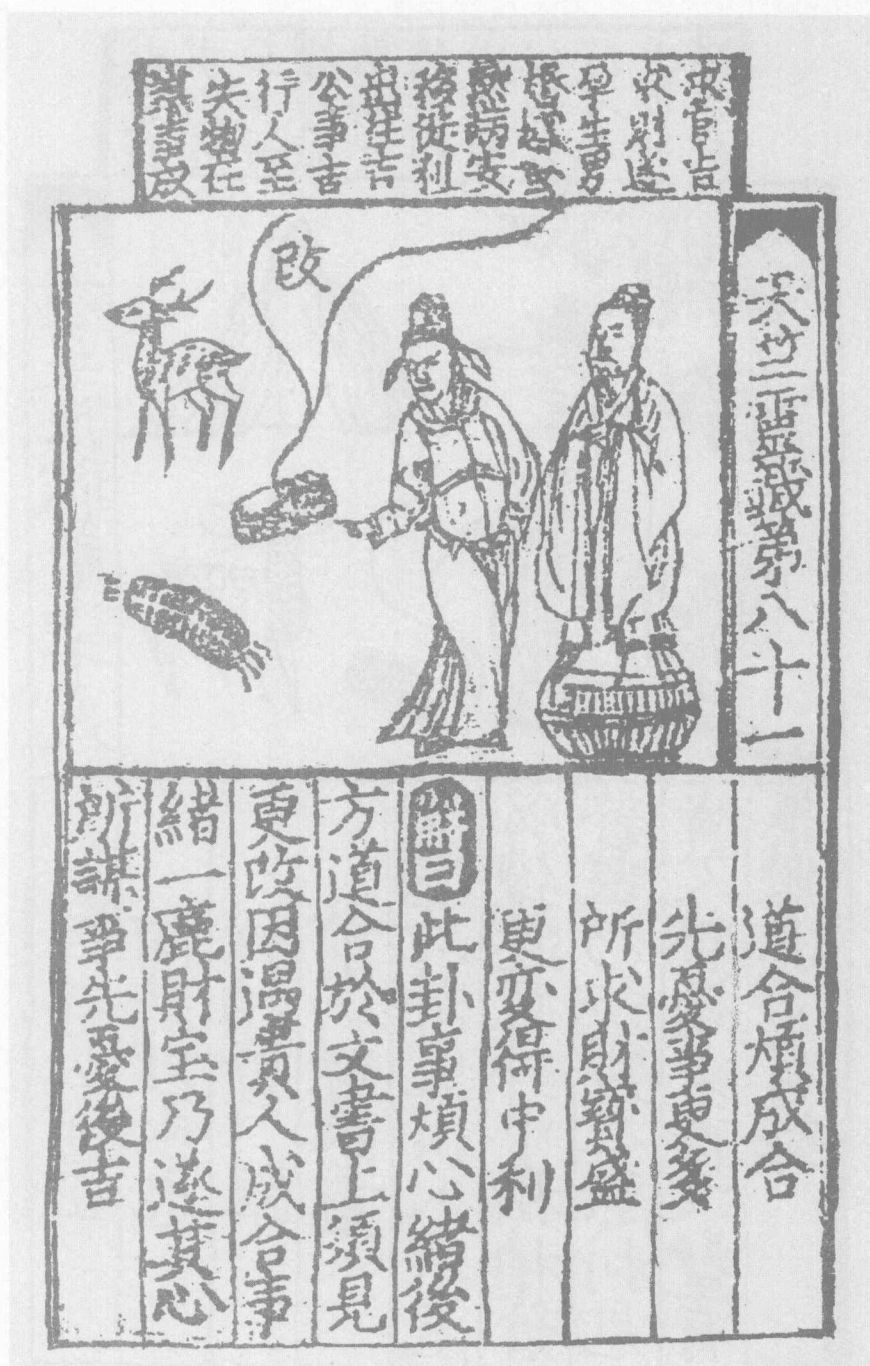 求官吉
求財遂
孕生男
婚姻
病安
移徙利
出往吉
公事吉
行人至
失物在
謀事成
改
天竺靈籤第八十一
道合煩成合
先憂事更多
所求財寶盛
更变得中利
解曰此卦事煩心緒後
方道合於文書上須見
更改因遇貴人成合事
緒一鹿財宝乃遂其心
所謀事先憂後吉